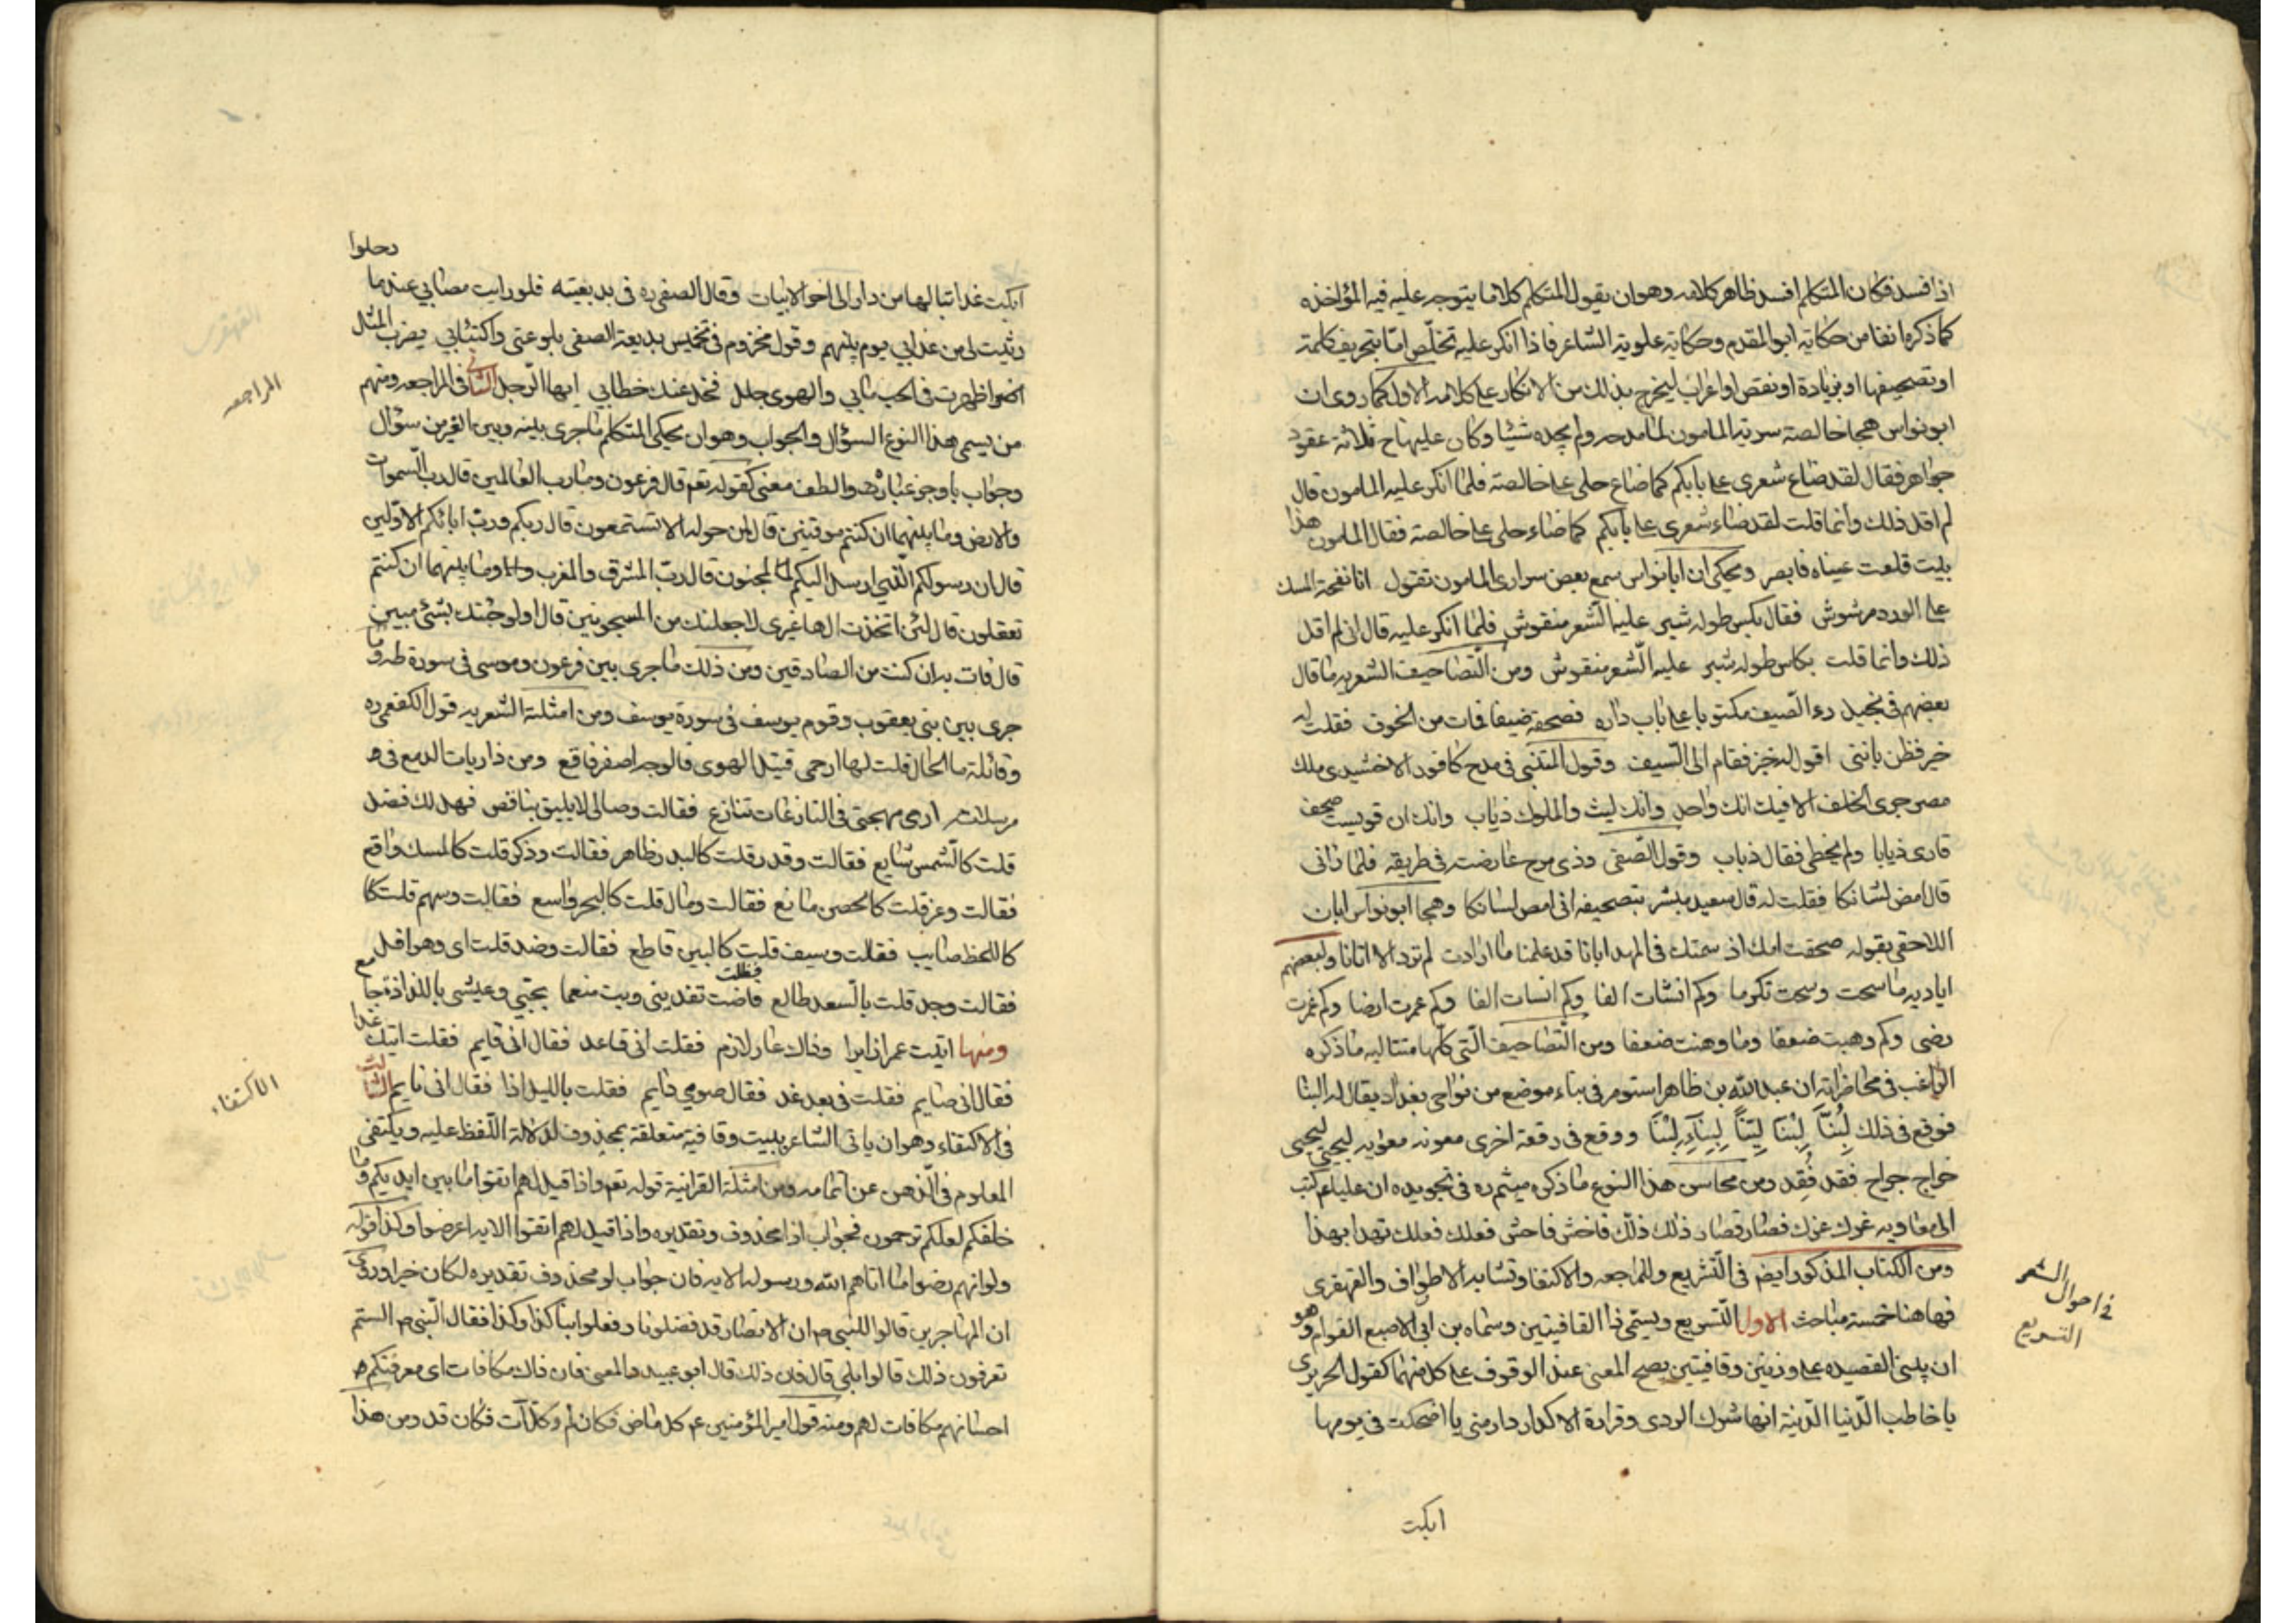 اذا فسد فكان المتكلم افسد ظاهر كلامه وهو ان يقول المتكلم كلاما يتوجه عليه فيه المؤاخذه
كما ذكره انفا من حكاية ابو المقدم وحكاية علوية الشاعر فاذا انكر عليه تخلّص امّا بتحريف كلمة
او تصحيفها او بزيادة او نقص او اعراب ليخرج بذلك من الانكار على كلامه الاول كما روى ان
ابو نواس هجا خالصة سرية المامون لما مدحه ولم يجده شيئا وكان عليها تاج ثلاثة عقود
جواهر فقال لقد ضاع شعرى على بابكم كما ضاع حلى على خالصة فلما انكر عليه المامون قال
لم اقل ذلك وانما قلت لقد ضاء شعرى على بابكم كما ضاء حلى على خالصة فقال المامون هذا
بيت قلعت عيناه فابصر ويحكى ان ابا نواس سمع بعض سرارى المامون تقول انا نفحة المسك
على الورد مرشوش فقال بكس طوله شبر عليه الشعر منقوش فلما انكر عليه قال انى لم اقل
ذلك وانما قلت بكاس طوله شبر عليه الشعر منقوش ومن التصاحيف الشعريه ما قال
بعضهم فى بخيل رءا الصيف مكتوبا على باب داره فصحفه ضيفا فمات من الخوف فقلت له
خير فظن بانى اقول له خبز فقام الى السيف وقول المتنبى فى مدح كافور الاخشيدى ملك
مصر جرى الخلف الا فيك انك واحد وانك ليث والملوك ذياب وانك ان قويست صحف
قارى ذيابا ولم يخطى فقال ذباب وقول الصفى وذى مرح عارضته فى طريقه فلما رانى
قال امض لشانكا فقلت له قال سعيد مبشر بتصحيفه انى امص لسانكا وهجا ابو نواس ابان
اللاحقى بقوله صحفت امك اذ سمتك فى المهد ابانا قد علمنا ما ارادت لم ترد الا اتانا ولبعضهم
اياديه ما سحت وسحت تكرما وكم انشات الفا وكم انسات الفا وكم عمرت ارضا وكم غمرت
رضى وكم وهبت ضعفا وما وهنت ضعفا ومن التصاحيف التى كلها متتاليه ما ذكره
الراغب فى محاضراته ان عبد الله بن طاهر استومر فى بناء موضع من نواحى بغداد يقال له البنا
فوقع فى ذلك ووقع فى رقعة اخرى معونه معويه ليجيى ليحيى
خراج جراح فقد فُقِد ومن محاسن هذا النوع ما ذكره ميثم ره فى تجويده ان عليا عم كتب
الى معاويه غرك عزك فصار قصار ذلك ذلك فاخش فاحش فعلك فعلك تهدا بهذا
ومن الكتاب المذكور ايض فى التشريع والمراجعه والاكتفا وتشابه الاطراف والقهقرى
فها هنا خمسة مباحث الاول التشريع ويسمى ذا القافيتين وسماه بن ابى الاصبع التوام وهو
ان يبنى القصيده على وزنين وقافيتين يصح المعنى عند الوقوف على كل منهما كقول الحريرى
يا خاطب الدنيا الدنية انها شرك الردى وقرارة الاكدار دار متى يا اضحكت فى يومها
ابكت
فى احوال الشعر
التشريع
دخلوا
ابكت غدا تبا لها من دار الى اخر الابيات وقال الصفى ره فى بديعيته فلو رايت مصابي عندما
رثيت لى من عذابي يوم بينهم وقول مخزوم فى تخميس بديعية الصفى بلوعتى واكتئابي يضرب المثل
اضوا ظهرت فى الحب مابي والهوى جلل فخذ عندك خطابي ايها الرجل الثانى فى المراجعه ومنهم
من يسمى هذا النوع السؤال والجواب وهو ان يحكى المتكلم ما جرى بينه وبين الغير من سؤال
وجواب باوجز عبارة والطف معنى كقوله تعم قال فرعون وما رب العالمين قال رب السموات
والارض وما بينهما ان كنتم موقنين قال لمن حوله الا تستمعون قال ربكم ورب ابائكم الاولين
قال ان رسولكم الذى ارسل اليكم لمجنون قال رب المشرق والمغرب وما بينهما ان كنتم
تعقلون قال لئن اتخذت الها غيرى لاجعلنك من المسجونين قال اولو جئتك بشئ مبين
قال فات به ان كنت من الصادقين ومن ذلك ما جرى بين فرعون وموسى فى سورة طه وما
جرى بين بنى يعقوب وقوم يوسف فى سورة يوسف ومن امثلته الشعريه قول الكفعمى ره
وقائلة ما الحال قلت لها ارحمى قتيل الهوى فالوجه اصفر فاقع ومن ذاريات الدمع فى
مرسلات ارى مهجتى فى النازعات تنازع فقالت وصالى لا يليق بناقص فهل لك فضل
قلت كالشمس شايع فقالت وقدر قلت كالبدر ظاهر فقالت وذكر قلت كالمسك واقع
فقالت وعز قلت كالحصن مانع فقالت ومال قلت كالبحر واسع فقالت وسهم قلت كا
كاللحظ صايب فقالت وسيف قلت كالبين قاطع فقالت وضد قلت اى وهو اقل
فقالت وجد قلت بالسعد طالع فاضت تفدينى وبيت منعما بحبي وعيشى باللذاذة جامع
ومنها اتيت عمرانا ايرا وذاك عار لازم فقلت انى قاعد فقال انى قايم فقلت اتيك غدا
فقال انى صايم فقلت فى بعد غد فقال صومي دايم فقلت بالليل اذا فقال انى نايم الثالث
فى الاكتفاء وهو ان ياتى الشاعر ببيت وقافيه متعلقة بمحذوف لدلالة اللفظ عليه ويكتفى
المعلوم فى الذهن عن اتمامه ومن امثلة القرانية قوله تعم واذا قيل لهم اتقوا ما بين ايديكم وما
خلفكم لعلكم ترحمون فجواب اذا محذوف وتقديره واذا قيل لهم اتقوا الايه اعرضوا وكذا قوله
ولو انهم رضوا ما اتاهم الله ورسوله الايه فان جواب لو محذوف تقديره لكان خيرا وروى
ان المهاجرين قالوا للنبى ص ان الانصار قد فضلونا وفعلوا بنا كذا وكذا فقال النبى ص الستم
تعرفون ذلك قالوا بلى قال فان ذلك قال ابو عبيد والمعنى فان ذاك مكافات اى معرفتكم
احسانهم مكافات لهم ومنه قول امير المؤمنين عم كل ماض فكان لم وكل آت فكان قد ومن هذا
المراجعه
الاكتفاء